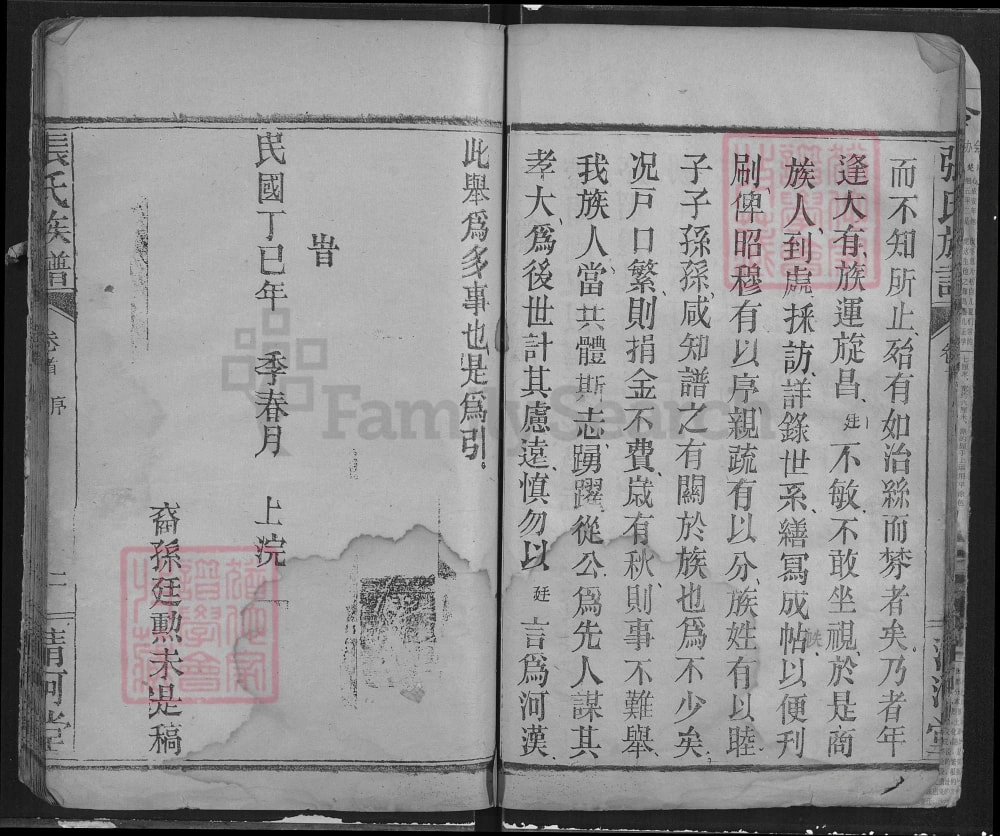 而不知所止殆有如治絲而棼者矣乃者年
逢大有族運旋昌廷不敏不敢坐視於是商
族人到處採訪詳錄世系繕寫成帖以便刊
刷俾昭穆有以序親疏有以分族姓有以睦
子子孫孫咸知譜之有關於族也為不少矣
况戶口繁則捐金不費歲有秋則事不難舉
我族人當共體斯志踴躍從公為先人謀其
孝大為後世計其慮遠慎勿以廷言為河漢
此舉為多事也是為引
旹
民國丁巳年 季春月 上浣
裔孫廷勲未是稿
張氏族譜 卷首 序 二 清河堂
FamilySearch